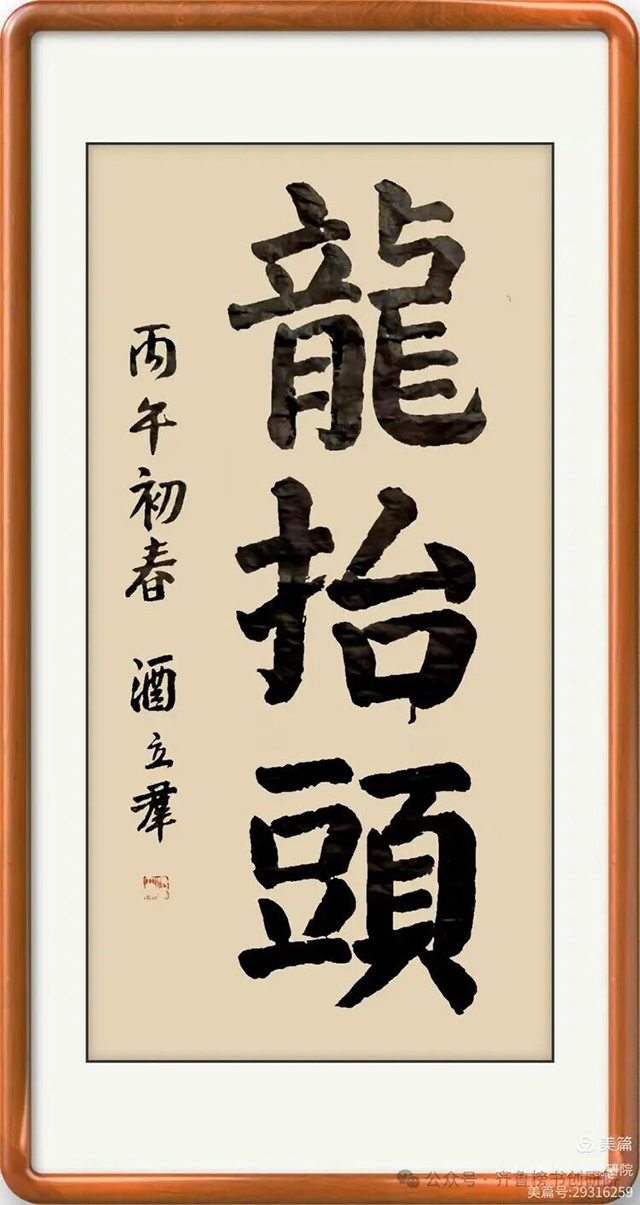 龍抬頭
丙午初春 酒立羣
美篇
公众号·齐鲁榜书创研院
美篇号:29316259